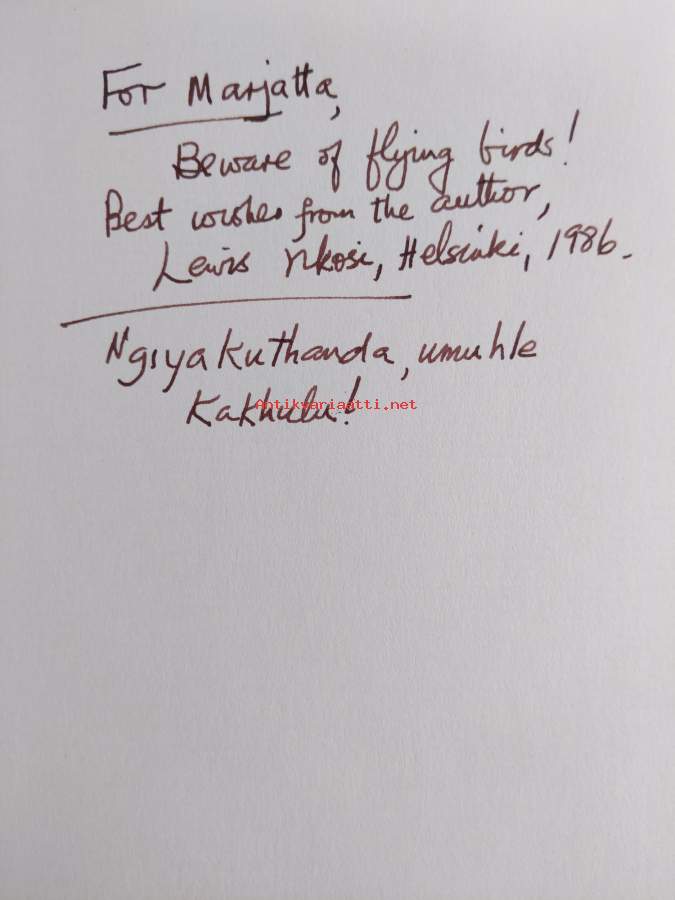 For Marjatta,
Beware of flying birds!
Best wishes from the author,
Lewis Nkosi, Helsinki, 1986.
Ngiyakuthanda, umuhle
Kakhulu!
Antikvariaatti.net